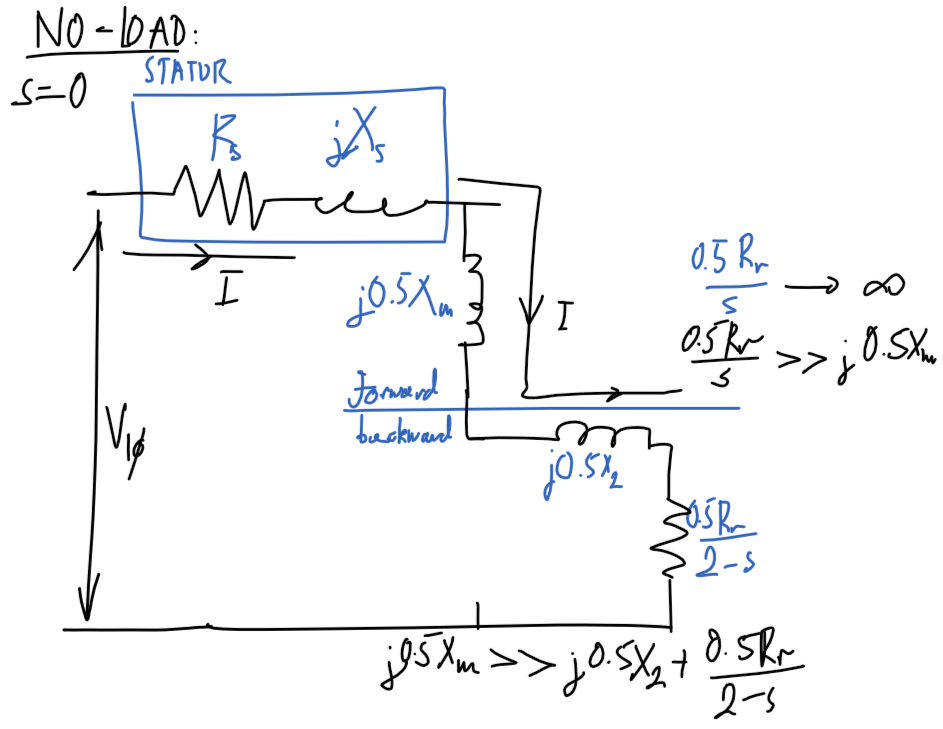 NO-LOAD:
s=0
STATOR
Rs
jXs
I
j0.5Xm
I
0.5 Rr / s → ∞
0.5Rr / s >> j 0.5Xm
forward
backward
V1φ
j0.5X2
0.5Rr / 2-s
j0.5Xm >> j0.5X2 + 0.5Rr / 2-s